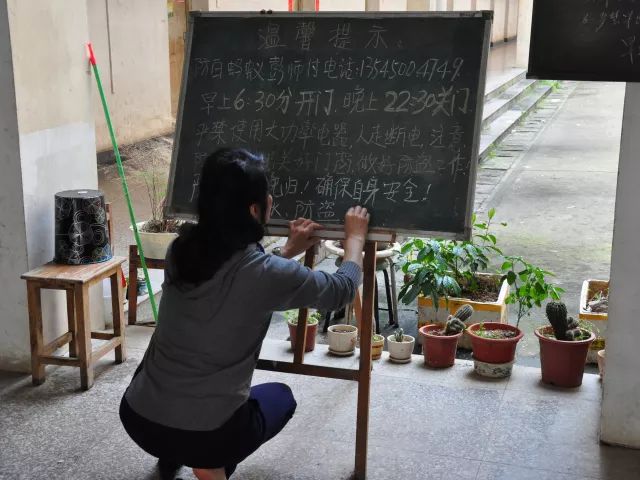 温馨提示:
防白蚂蚁彭师付电话:13545004749.
早上6:30分开门.晚上22:30关门
严禁使用大功率电器,人走断电,注意
关好门窗做好防盗工作
晚归!确保自身安全!
火、防盗
早